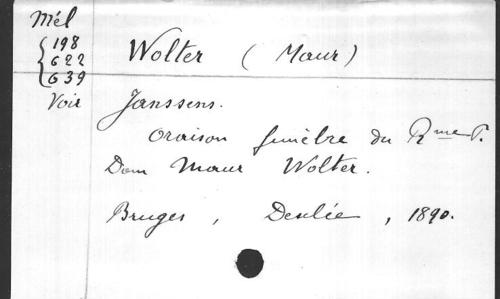 Mél
198
622
639
Wolter (Maur)
Voir
Janssens.
Oraison funèbre du Rme P.
Dom Maur Wolter.
Bruges, Desclée, 1890.